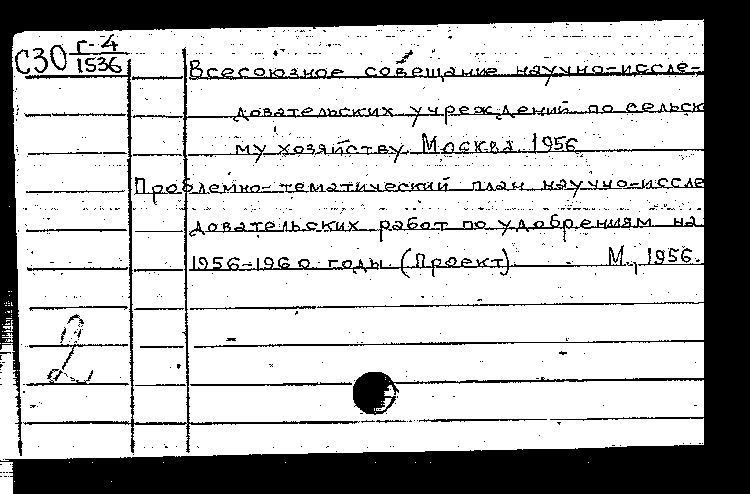 С30 г-4
1536
Всесоюзное совещание научно-иссле-
довательских учреждений по сельск
му хозяйству. Москва. 1956
Проблемно-тематический план научно-иссле
довательских работ по удобрениям на
1956-1960 годы (Проект). М., 1956.
2